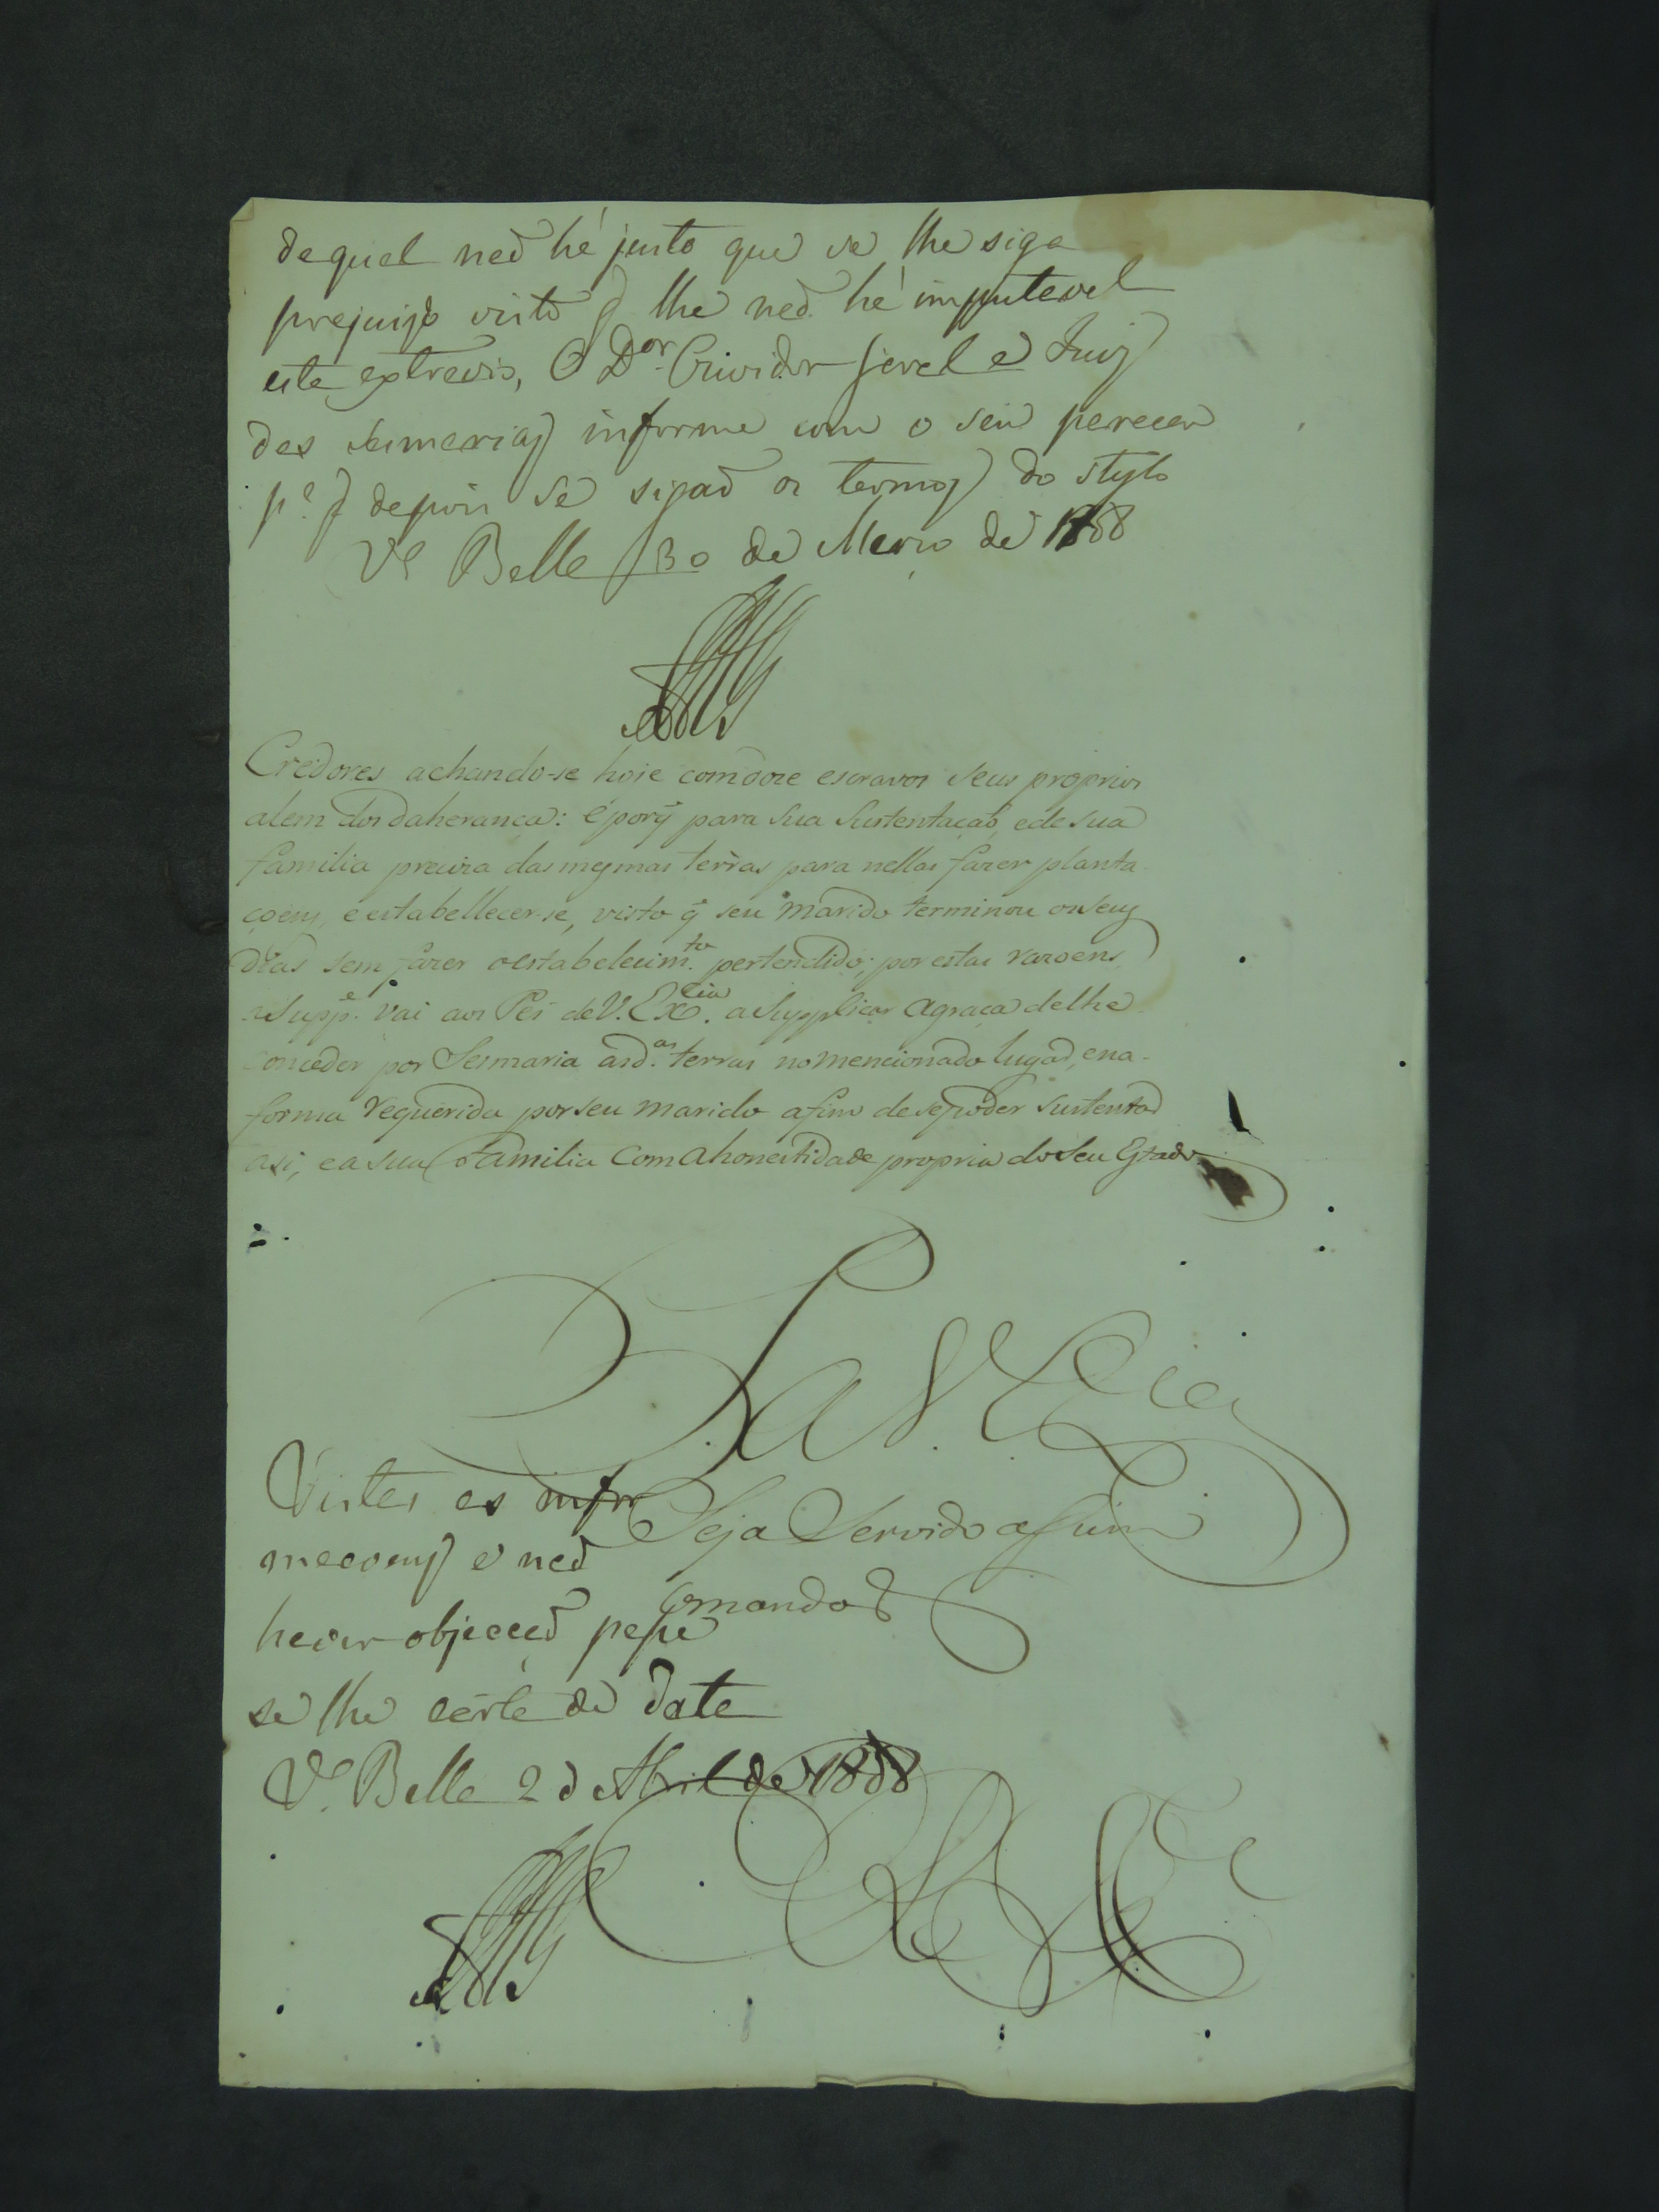 da qual naõ hé justo que se lhe siga
prejuizo visto q̃ lhe naõ hé imputavel
este extravio, O D.or Ouvidor Geral e Juiz
das Sesmarias informe com o seu parecer
p.a q̃ depois se sigaõ os termos do stylo
V.a Bella 30 de Março de 1808
Credores achando-se hoje com doze escravos seus proprios
alem dos da herança: é porq̃ para sua sustentaçaõ, e de sua
familia preciza das mesmas terras para nellas fazer planta
çoens, e estabellecer-se, visto q̃ seu marido terminou os seus
dias sem fazer o estabelecim.to pertendido; por estas razoens
a Supp.e vai aos Pés de V. Ex.cia a Supplicar a graça de lhe
conceder por Sesmaria as d.as terras no mencionado lugar, e na
forma requerida por seu marido afim de se poder sustentar
a si, e a sua familia com a honestidade propria do seu Estado
P. a V. Ex.cia
Seja Servido assim
o mandar
Vistas as infor
maçoens e naõ
haver objecçaõ passe
se lhe carta de data
V.a Bella 2 d Abril de 1808
E R M.ce